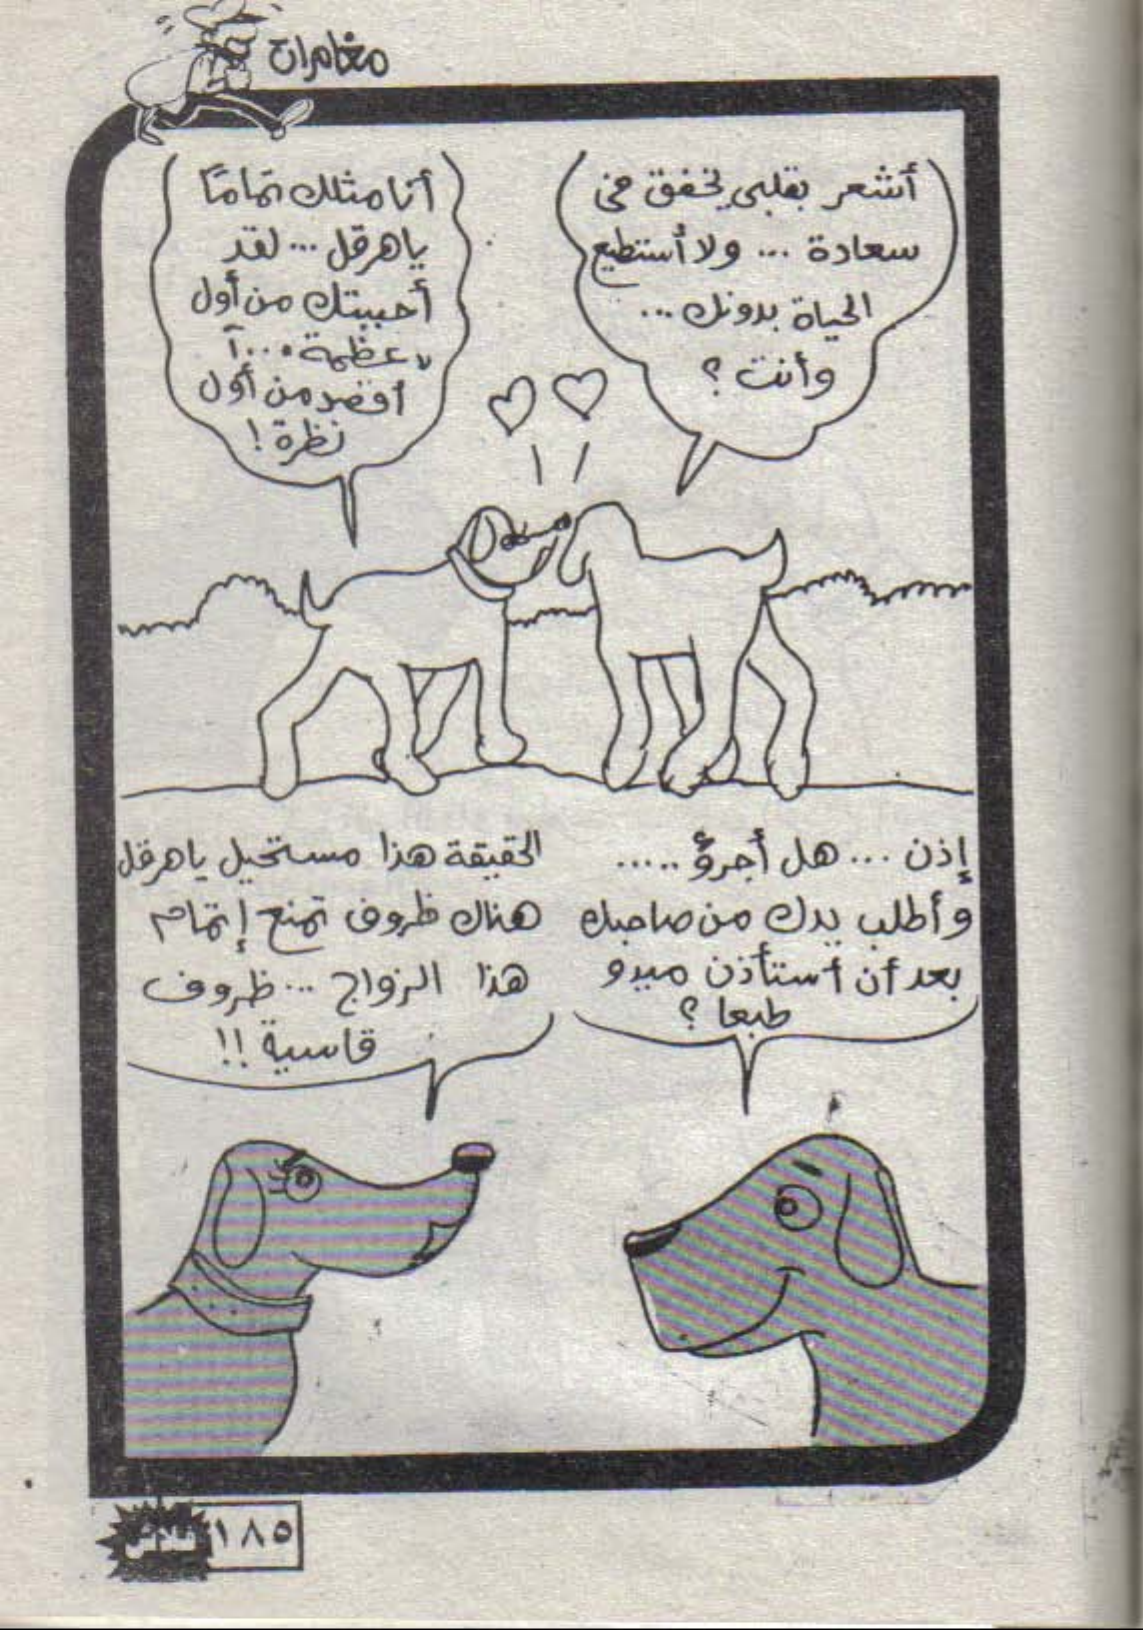 مغامرات
أشعر بقلبي يخفق في
سعادة ... ولا أستطيع
الحياة بدونك ...
وأنت ؟
أنا مثلك تمامًا
يا هرقل ... لقد
أحببتك من أول
عظمة ... آ
أقصد من أول
نظرة !
إذن ... هل أجرؤ .....
وأطلب يدك من صاحبك
بعد أن أستأذن ميدو
طبعا ؟
الحقيقة هذا مستحيل يا هرقل
هناك ظروف تمنع إتمام
هذا الزواج ... ظروف
قاسية !!
١٨٥
فلاش